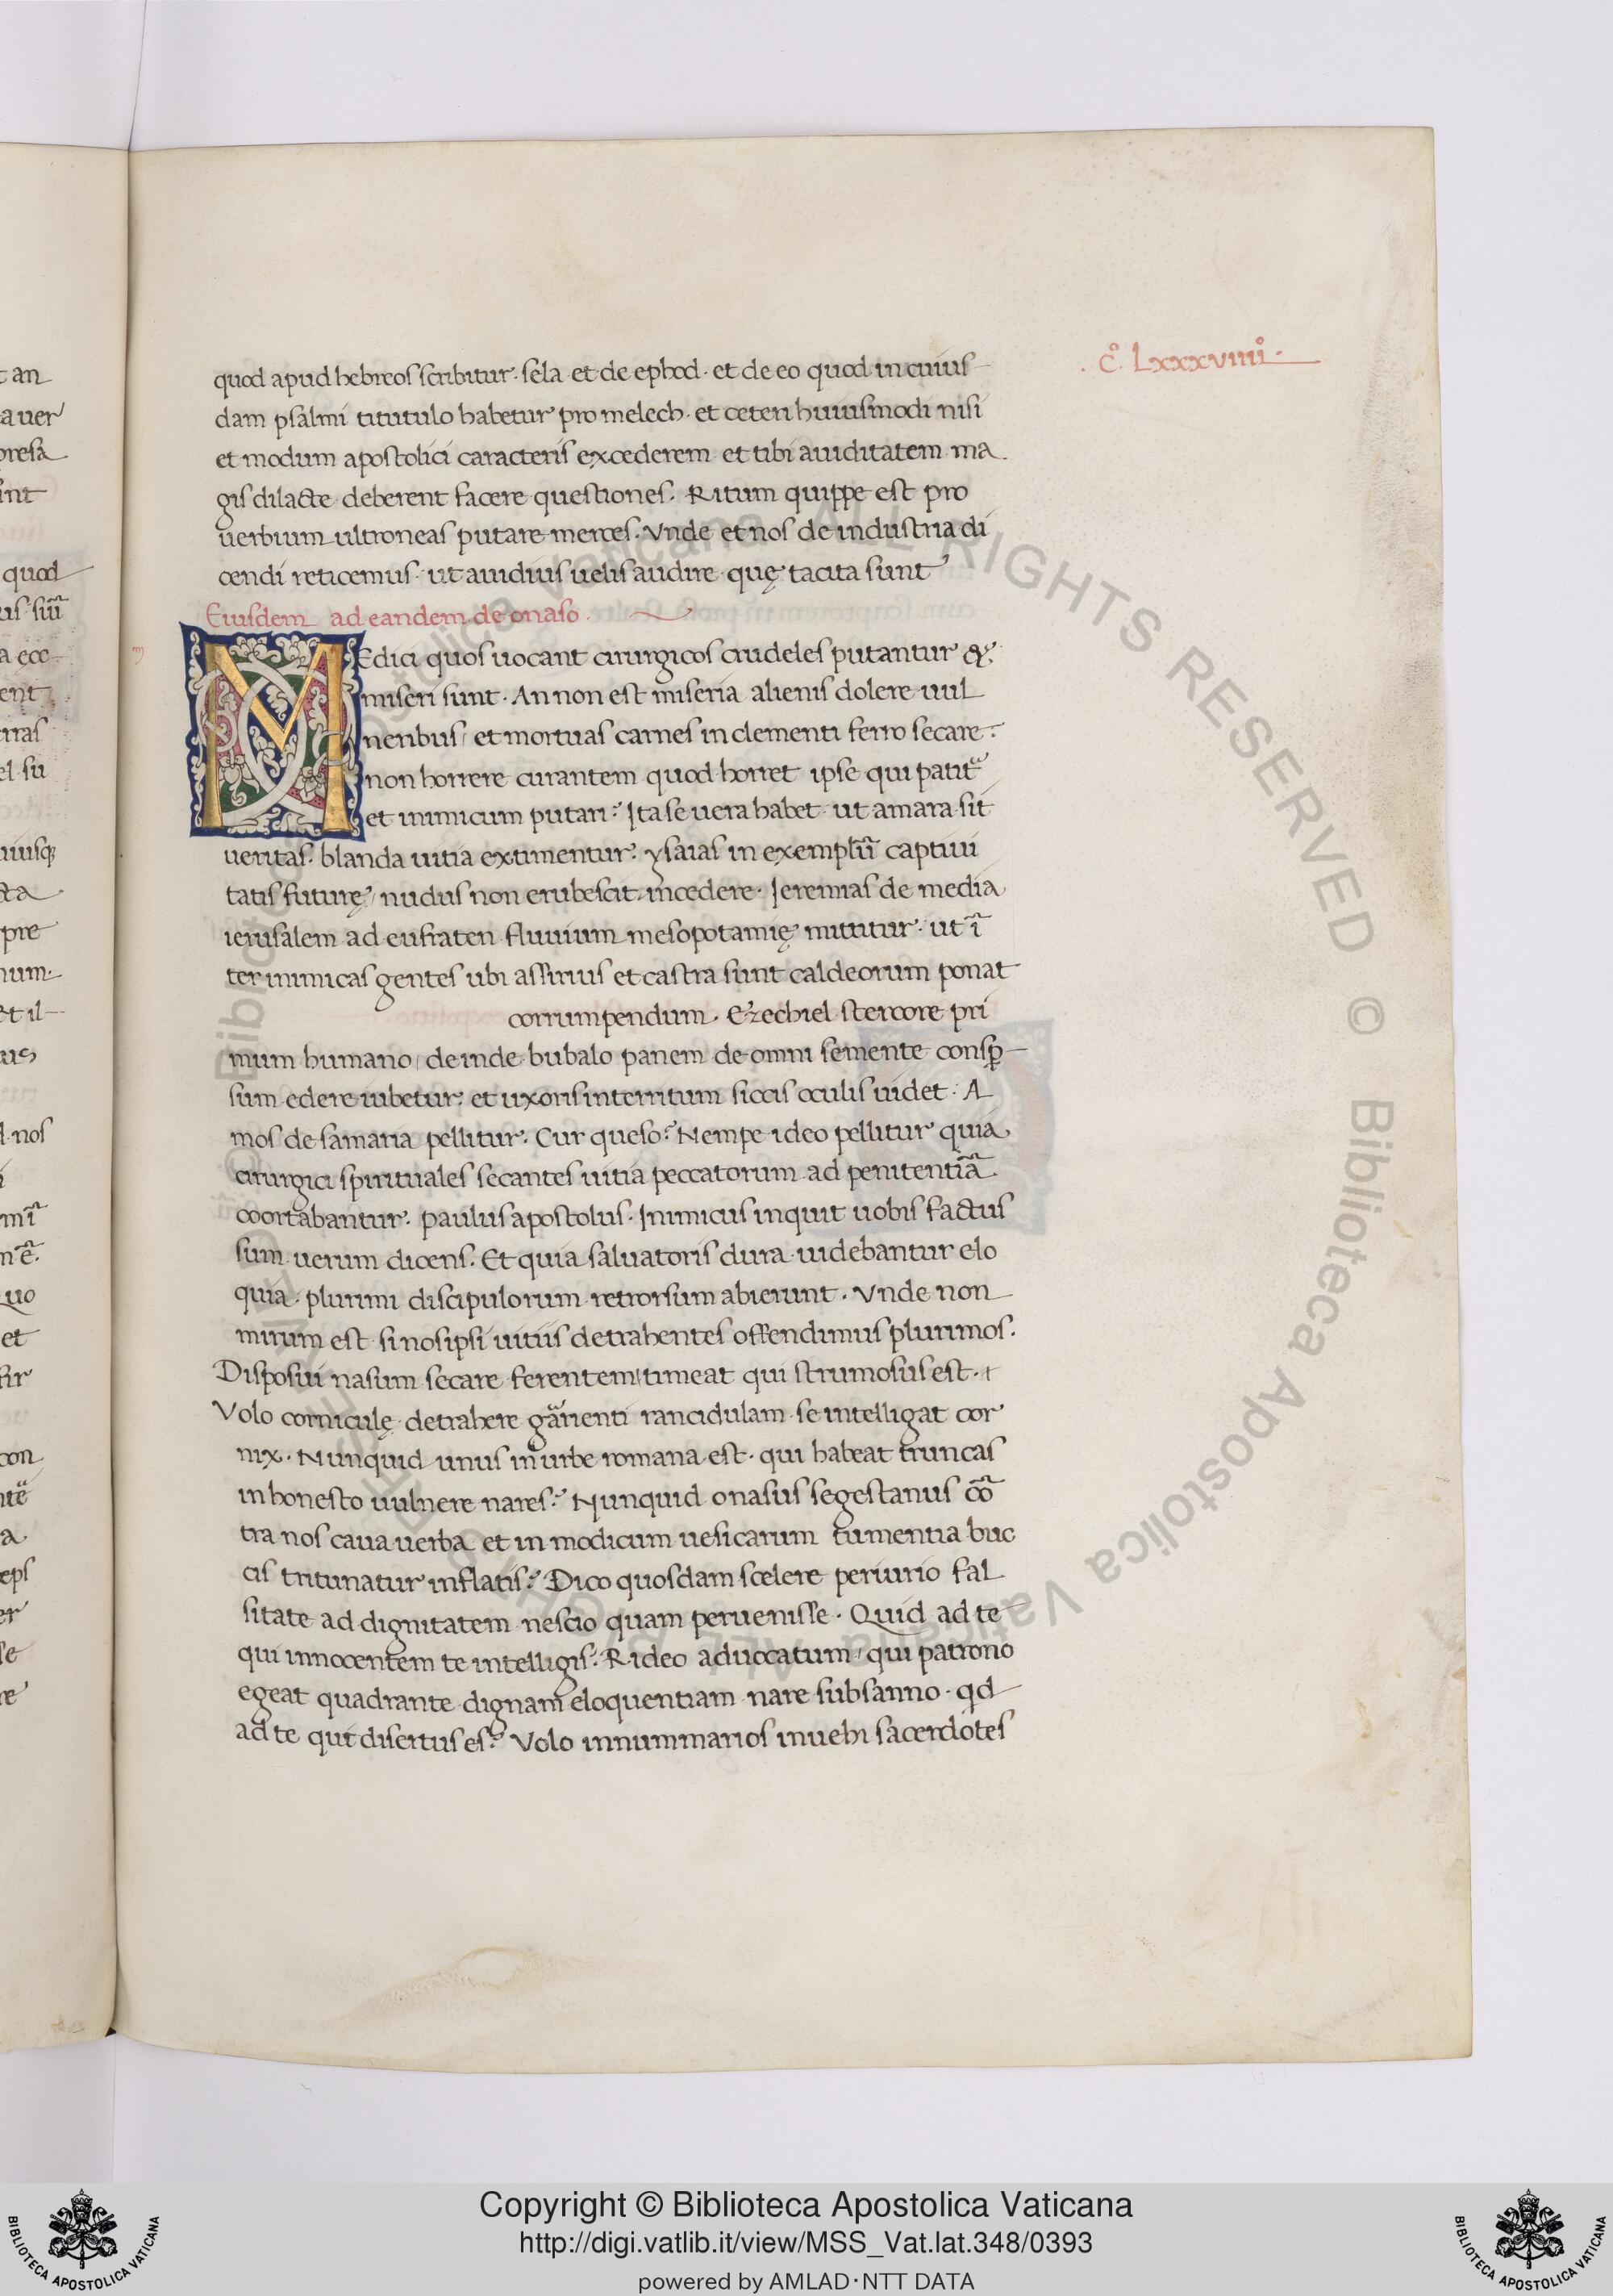 c̊. Lxxxviiii̊.
quod apud hebreos scribitur. sela et de ephod. et de eo quod in cuius
dam psalmi titutulo habetur pro melech. et ceteri huiusmodi nisi
et modum apostolici caracteris excederem et tibi auiditatem ma
gis dilacte deberent facere questiones. Ritum quippe est pro
uerbium ultroneas putare merces. Vnde et nos de industria di
cendi reticemus. ut auidius uelis audire quę tacita sunt
Eiusdem ad eandem de onaso.
m
MEdici quos uocant cirurgicos crudeles putantur &
miseri sunt. An non est miseria alienis dolere uul
neribus, et mortuas carnes in clementi ferro secare.
non horrere curantem quod horret ipse qui patit᷑
et inimicum putari? Ita se uera habet ut amara sit
ueritas. blanda uitia extimentur. ysaias in exemplū captiui
tatis futurę, nudus non erubescit incedere. Ieremias de media
ierusalem ad eufraten fluuium mesopotamię mittitur. ut ī
ter inimicas gentes ubi assirius et castra sunt caldeorum ponat
corrumpendum. Ezechiel stercore pri
mum humano, deinde bubalo panem de omni semente consp̱
sum edere iubetur. et uxoris interritum siccis oculis uidet. A
mos de samaria pellitur. Cur queso? Nempe ideo pellitur quia
cirurgici spirituales secantes uitia peccatorum ad penitentiā
coortabantur. paulus apostolus. Inimicus inquit uobis factus
sum uerum dicens. Et quia saluatoris dura uidebantur elo
quia. plurimi discipulorum retrorsum abierunt. Vnde non
mirum est si nos ipsi uitiis detrahentes offendimus plurimos.
Disposui nasum secare ferentem, timeat qui strumosus est.
Volo corniculę detrahere garrienti rancidulam se intelligat cor
nix. Nunquid unus in urbe romana est. qui habeat truncas
inhonesto uulnere nares? Nunquid onasus segestanus cō
tra nos caua uerba et in modicum uesicarum tumentia buc
cis tritunatur inflatis? Dico quosdam scelere periurio fal
sitate ad dignitatem nescio quam peruenisse. Quid ad te
qui innocentem te intelligis? Rideo aduocatum, qui patrono
egeat quadrante dignam eloquentiam nare subsanno. qd
ad te qui disertus es? Volo innummarios inuehi sacerdotes
Copyright © Biblioteca Apostolica Vaticana
http://digi.vatlib.it/view/MSS_Vat.lat.348/0393
powered by AMLAD·NTT DATA